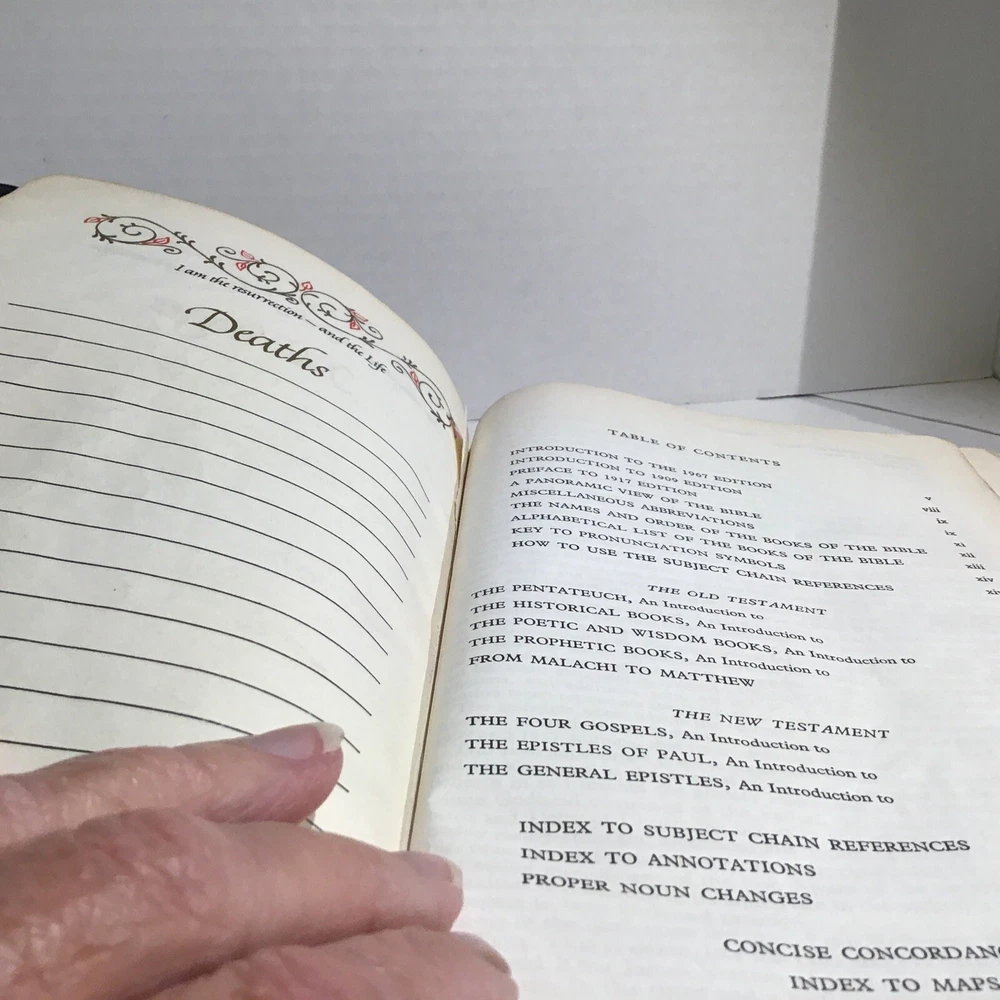 I am the resurrection — and the Life
Deaths
TABLE OF CONTENTS
INTRODUCTION TO THE 1967 EDITION v
INTRODUCTION TO 1909 EDITION viii
PREFACE TO 1917 EDITION ix
A PANORAMIC VIEW OF THE BIBLE ix
MISCELLANEOUS ABBREVIATIONS xi
THE NAMES AND ORDER OF THE BOOKS OF THE BIBLE xii
ALPHABETICAL LIST OF THE BOOKS OF THE BIBLE xiii
KEY TO PRONUNCIATION SYMBOLS xiv
HOW TO USE THE SUBJECT CHAIN REFERENCES
THE OLD TESTAMENT
THE PENTATEUCH, An Introduction to
THE HISTORICAL BOOKS, An Introduction to
THE POETIC AND WISDOM BOOKS, An Introduction to
THE PROPHETIC BOOKS, An Introduction to
FROM MALACHI TO MATTHEW
THE NEW TESTAMENT
THE FOUR GOSPELS, An Introduction to
THE EPISTLES OF PAUL, An Introduction to
THE GENERAL EPISTLES, An Introduction to
INDEX TO SUBJECT CHAIN REFERENCES
INDEX TO ANNOTATIONS
PROPER NOUN CHANGES
CONCISE CONCORDAN
INDEX TO MAPS